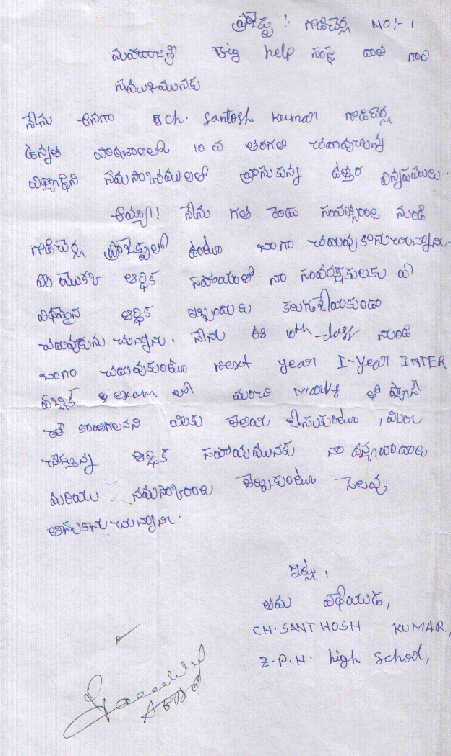 ప్రాజెక్టు ! గాజిచెర్ల NO:- 1
మహారాజశ్రీ big help సంస్థ వారి గారి
సముఖమునకు
నేను అనగా Ch. Santosh Kumar గాజిచెర్ల
ఉన్నత పాఠశాలలో 10 వ తరగతి చదువుచున్న
విద్యార్థిని నమస్కారములతో వ్రాసుకున్న ఉత్తర విన్నపములు.
అయ్యా!! నేను గత రెండు సంవత్సరాల నుండి
గాజిచెర్ల ప్రాజెక్టులో ఉంటూ బాగా చదువుకొనుచున్నాను.
మీ యొక్క ఆర్థిక సహాయంతో నా సంరక్షకులకు ఏ
విధమైన ఆర్థిక ఇబ్బందులు కలుగచేయకుండా
చదువుకును చున్నాను. నేను ఈ 10th class నుండి
బాగా చదువుకుంటూ next year I-year INTER
పబ్లిక్ exam లో మంచి marks తో ప్యాస్
మీకు తెలియ చేసుకుంటూ, మీరు
చేస్తున్న ఆర్థిక సహాయమునకు నా ధన్యవాదాలు
మరియు నమస్కారాలు తెల్పుకుంటూ సెలవు
తీసుకొను చున్నాను.
ఇట్లు,
తమ విధేయుడు,
CH. SANTHOSH KUMAR,
Z.P.H. high School,